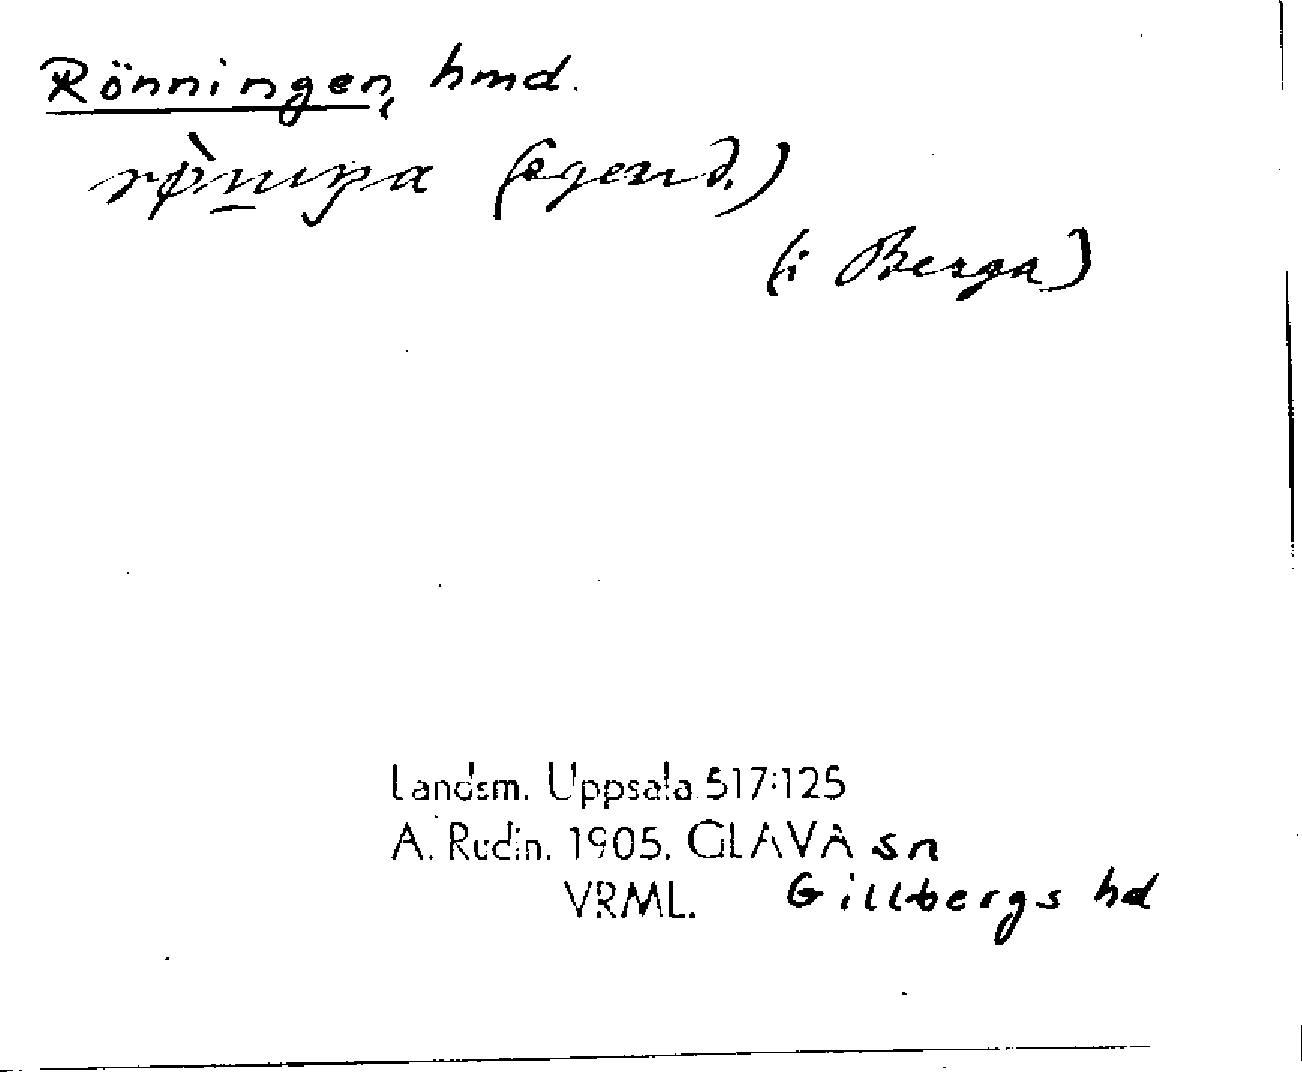 Rönningen, hmd.
(egend.)
(i Berga)
Landsm. Uppsala 517:125
A. Rudin. 1905. GLAVA sn
VRML. Gillbergs hd